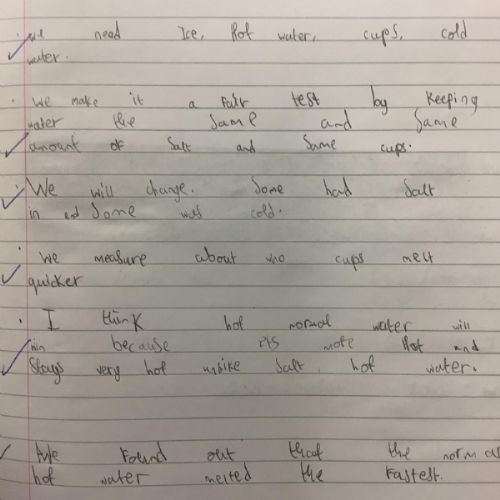 We need Ice, Hot water, cups, cold
water.
We make it a Fair test by Keeping
water the Same and Same
amount of Salt and Same cups.
We will change. Some had Salt
in and Some was cold.
We measure about who cups melt
quicker
I think hot normal water will
win because its more Hot and
Stays very hot unlike Salt, hot water.
We Found out that the normal
hot water melted the Fastest.